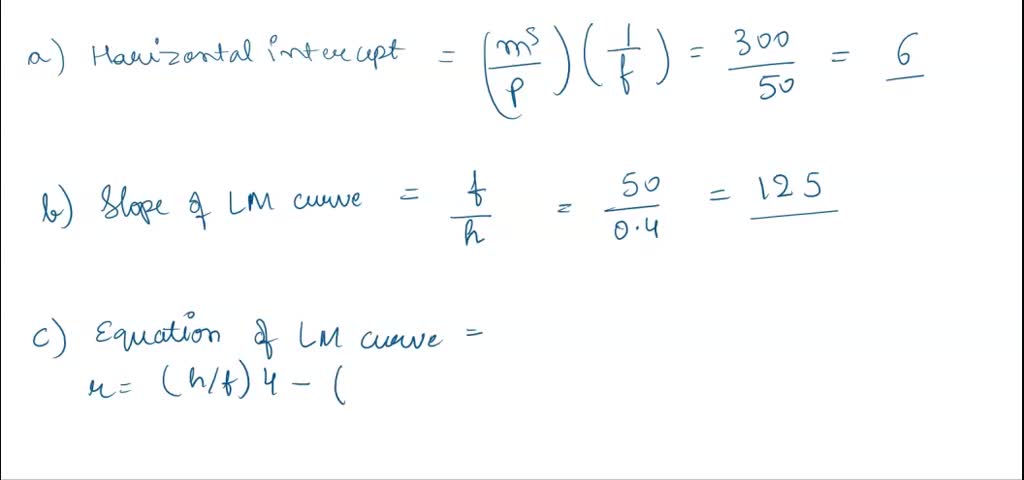 a) Horizontal intercept = (mˢ/p)(1/f) = 300/50 = 6
b) Slope of LM curve = f/h = 50/0.4 = 125
c) Equation of LM curve =
r = (h/f)Y - (